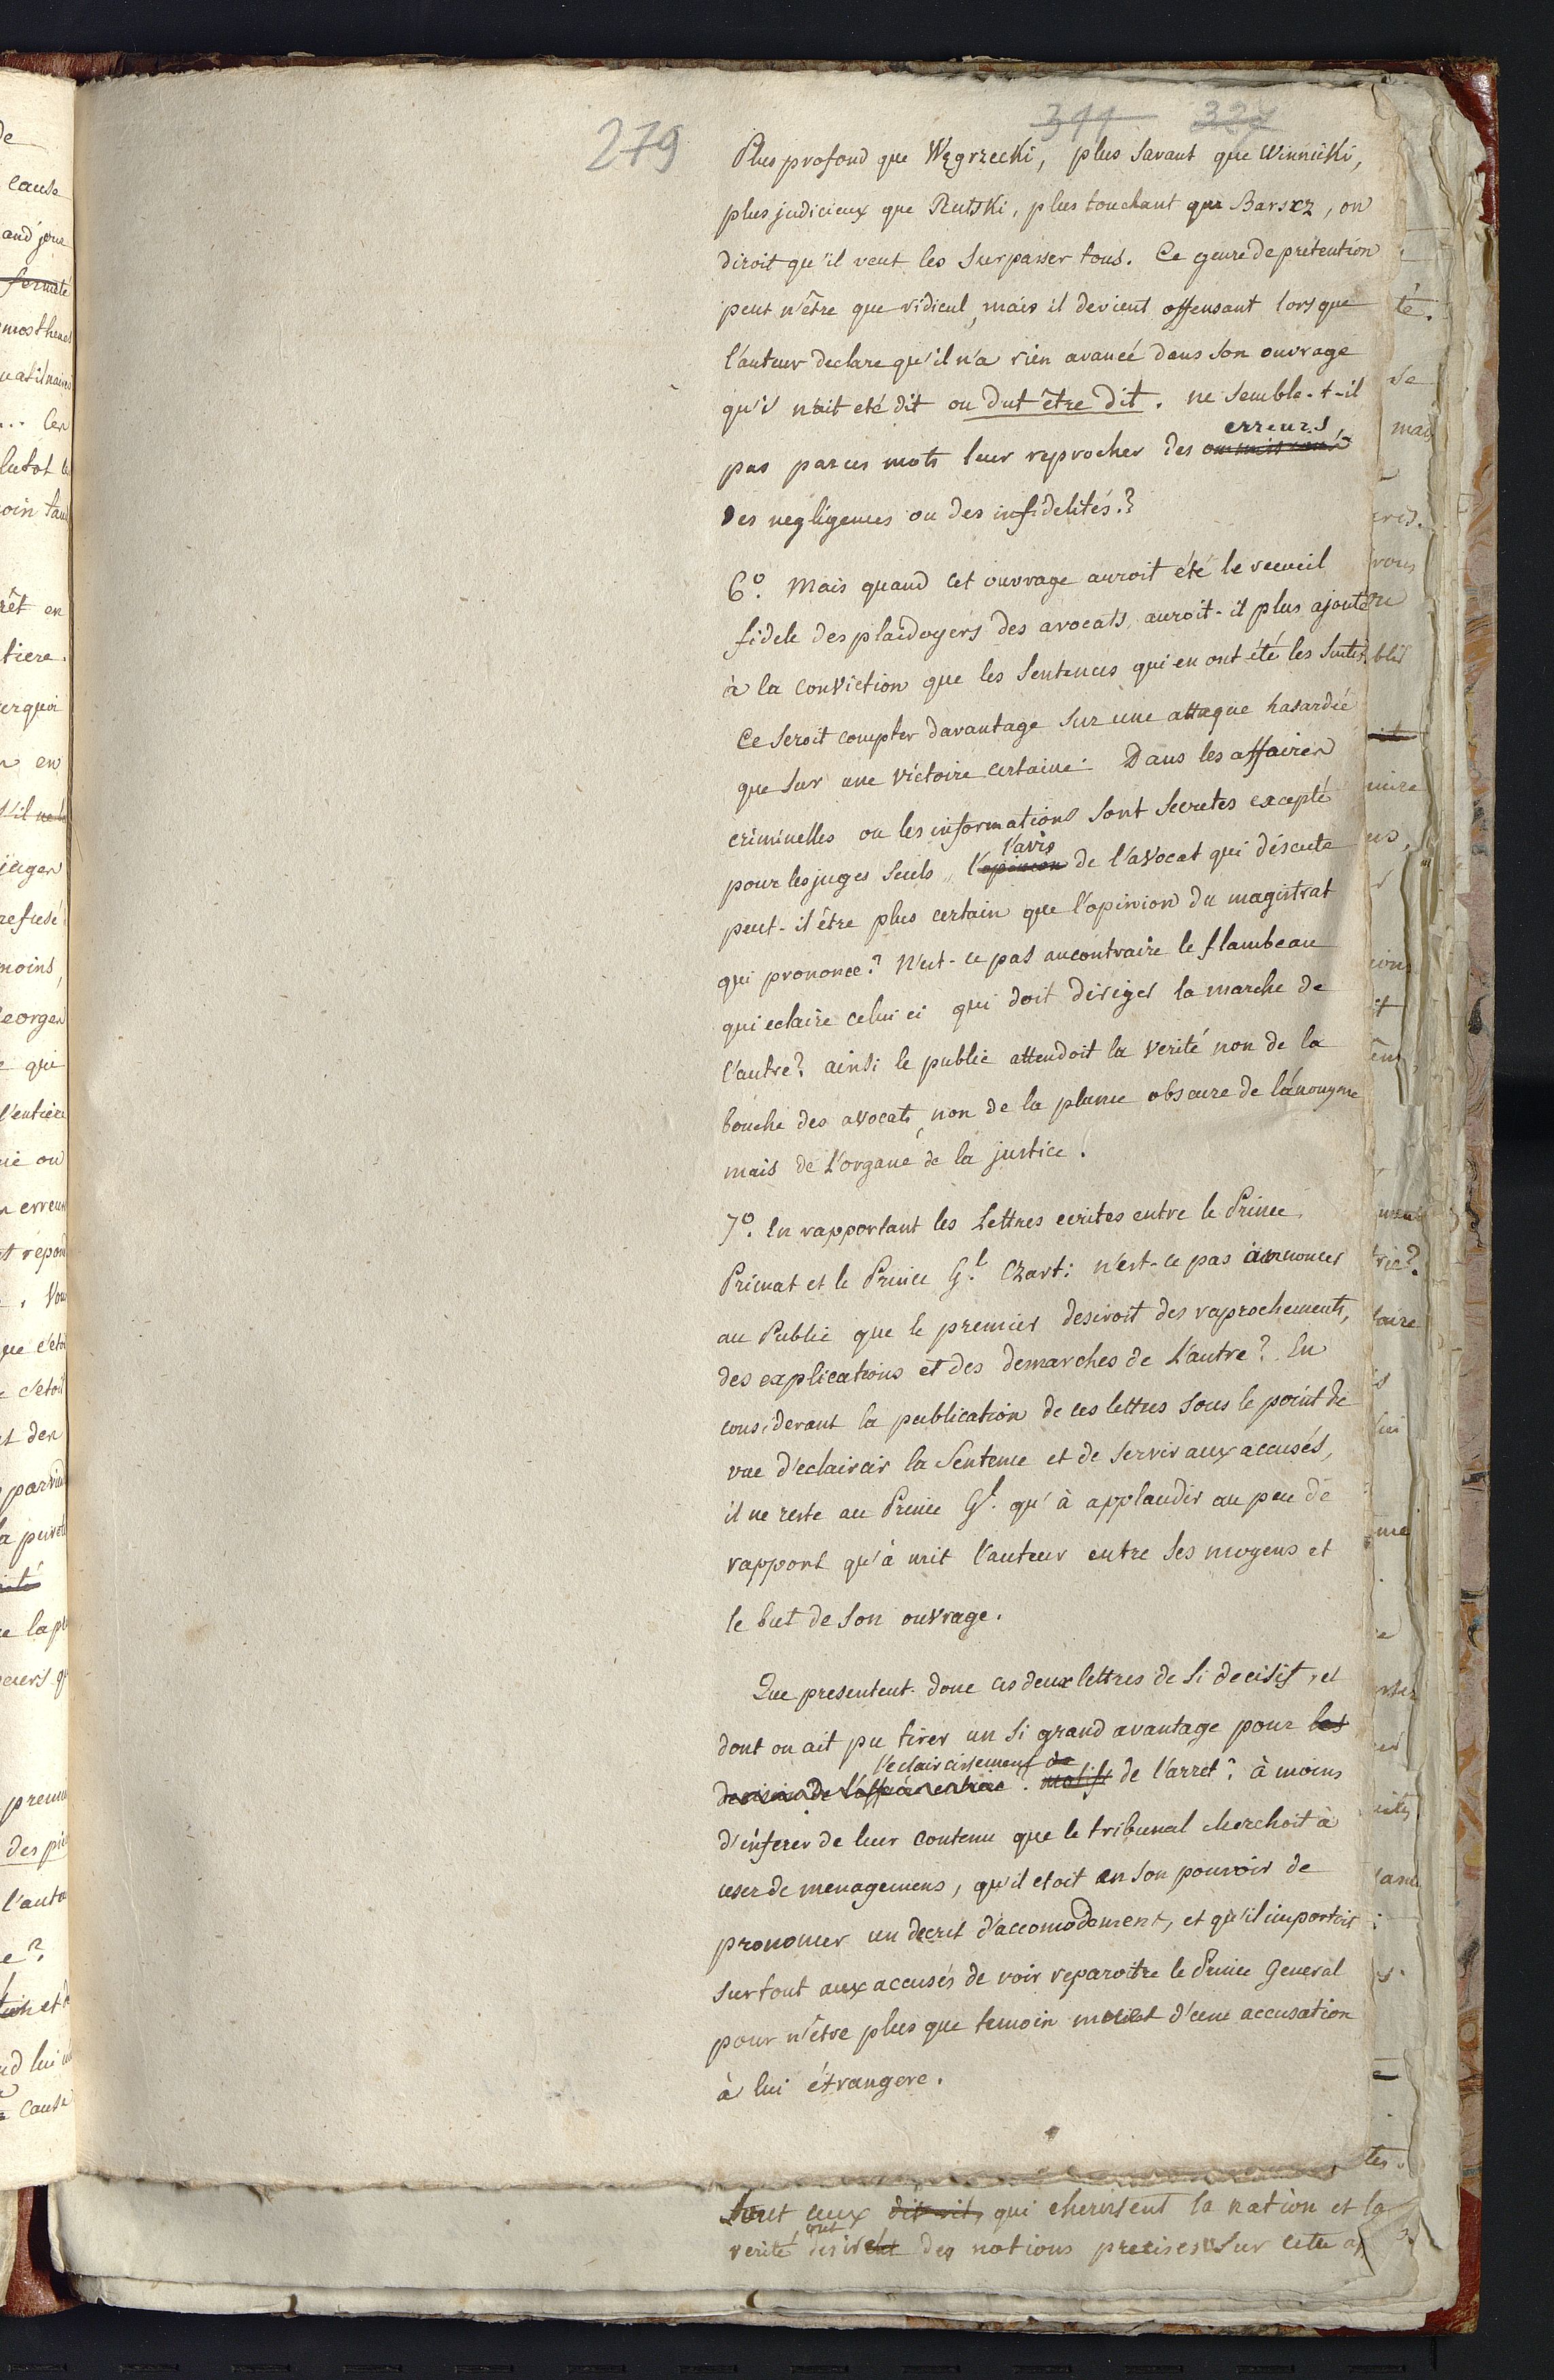 279
311 327
Plus profond que Węgrzecki, plus savant que Winnicki,
plus judicieux que Rutski, plus touchant que Barsxz, on
diroit qu'il veut les surpasser tous. Ce genre de prétention
peut n'être que ridicul, mais il devient offensant lorsque
l'auteur declare qu'il n'a rien avancé dans son ouvrage
qu'il n'ait eté dit ou dut être dit. ne semble-t-il
erreurs,
pas par ces mots leur reprocher des ommissions
des negligences ou des infidelités?
6º. Mais quand cet ouvrage auroit été le recueil
fidele des plaidoyers des avocats, auroit-il plus ajouté
à la conviction que les sentences qui en ont été les suites
Ce seroit compter davantage sur une attaque hasardée
que sur une victoire certaine. Dans les affaires
criminelles ou les informations sont secretes excepté
l'avis
pour les juges seuls, l'opinion de l'avocat qui discute
peut-il être plus certain que l'opinion du magistrat
qui prononce? N'est-ce pas aucontraire le flambeau
qui eclaire celui ci qui doit diriger la marche de
l'autre? ainsi le public attendoit la verité non de la
bouche des avocats, non de la plume obscure de l'anonyme
mais de l'organe de la justice.
7º. En rapportant les Lettres ecrites entre le Prince
Primat et le Prince Gl. Czart: n'est-ce pas annoncer
au Public que le premier desiroit des raprochements,
des explications et des demarches de l'autre? En
considerant la publication de ces lettres sous le point de
vue d'eclaircir la Sentence et de servir aux accusés,
il ne reste au Prince Gl. qu'à applaudir au peu de
rapport qu'à mit l'auteur entre ses moyens et
le but de son ouvrage.
Que presentent donc ces deux lettres de si decisif, et
dont on ait pu tirer un si grand avantage pour les
l'eclaircissement de
decision de l'affaire entiere. motifs de l'arret? à moins
d'inferer de leur contenu que le tribunal cherchoit à
user de menagemens, qu'il etoit en son pouvoir de
prononcer un decret d'accomodement, et qu'il importoit
surtout aux accusés de voir reparoitre le Prince General
pour n'être plus que temoin muet d'une accusation
à lui étrangere.
tout ceux qui cherissent la nation et la
ont
verité desirent des notions precises sur cette